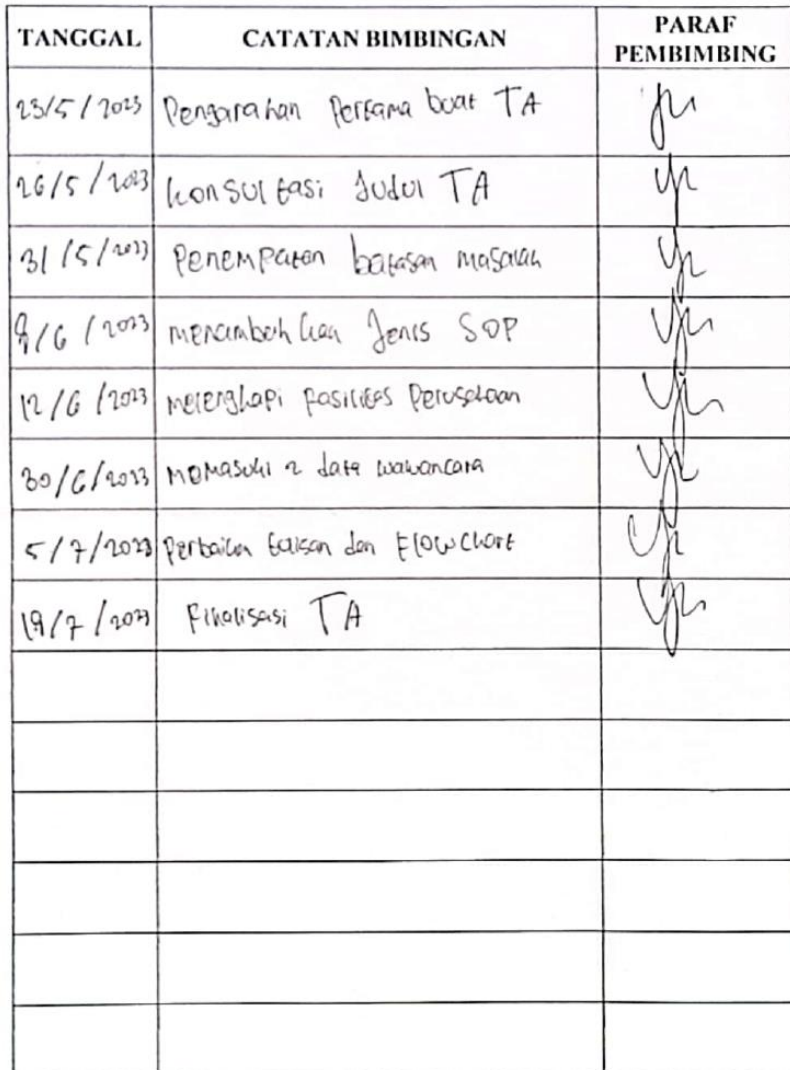 TANGGAL CATATAN BIMBINGAN PARAF PEMBIMBING
23/5/2023 Pengarahan Pertama buat TA
26/5/2023 Konsultasi Judul TA
31/5/2023 Penempaten batasan masalah
9/6/2023 menambahkan Jenis SOP
12/6/2023 melengkapi fasilitas Perusahaan
30/6/2023 memasuki 2 data wawancara
5/7/2023 Perbaikan tulisan dan Flowchart
19/7/2023 Finalisasi TA